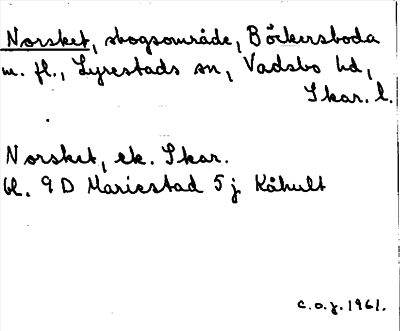 Norsket, skogsområde, Böckersboda
m. fl., Lyrestads sn, Vadsbo hd,
Skar. l.
Norsket, ek. Skar.
bl. 9 D Mariestad 5 j Kåhult
c.o.z. 1961.